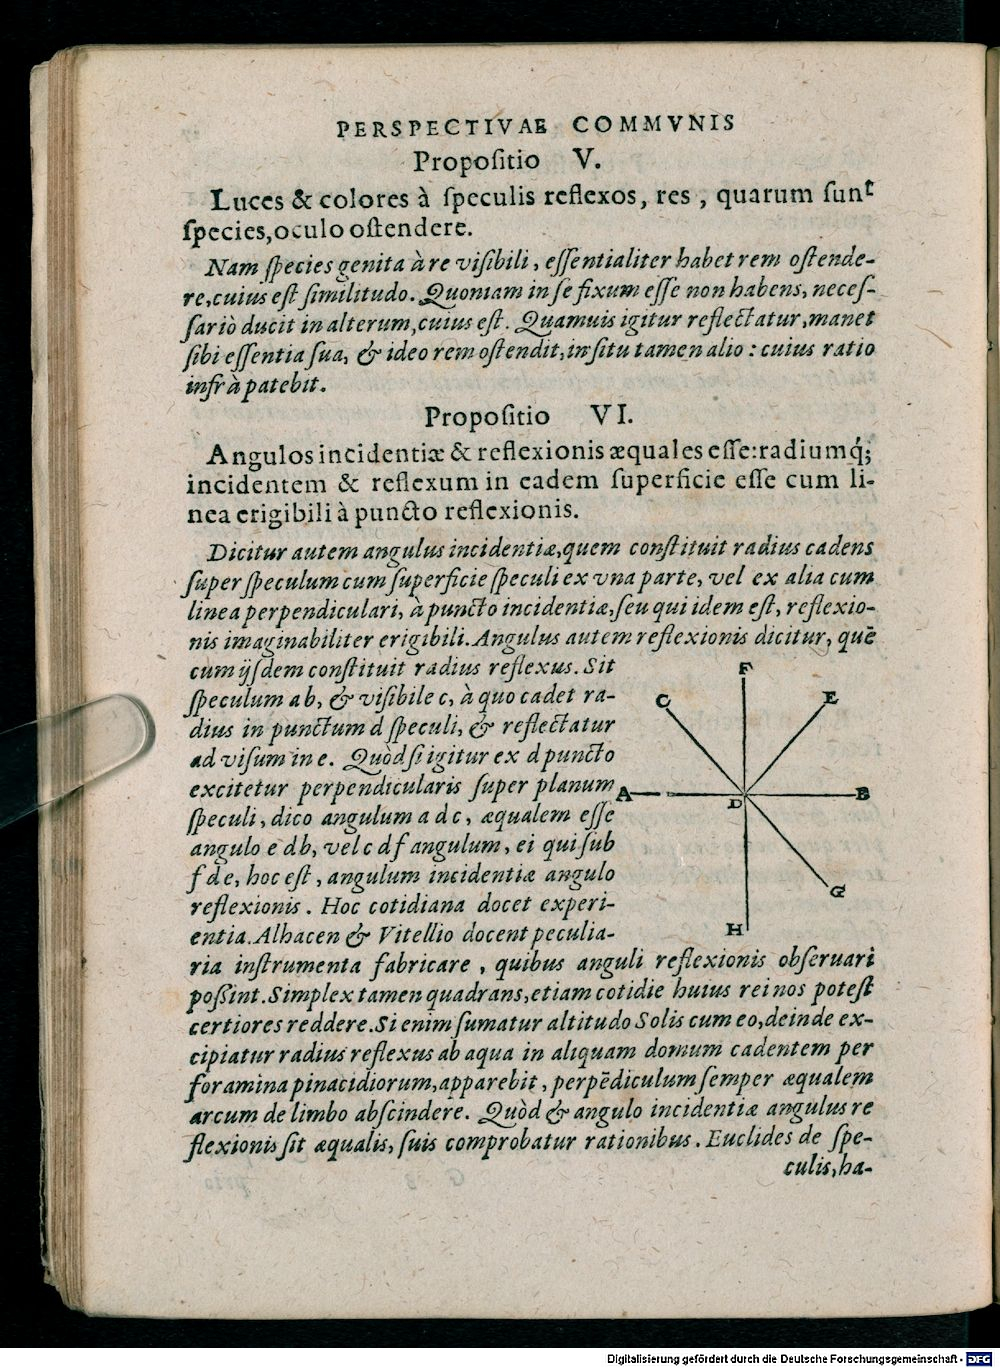 PERSPECTIVAE COMMVNIS
Propoſitio V.
Luces & colores à ſpeculis reflexos, res, quarum ſunt
ſpecies, oculo oſtendere.
Nam ſpecies genita à re viſibili, eſſentialiter habet rem oſtende-
re, cuius eſt ſimilitudo. Quoniam in ſe fixum eſſe non habens, neceſ-
ſariò ducit in alterum, cuius eſt. Quamuis igitur reflectatur, manet
ſibi eſſentia ſua, & ideo rem oſtendit, in ſitu tamen alio: cuius ratio
infrà patebit.
Propoſitio VI.
Angulos incidentiæ & reflexionis æquales eſſe: radiumq́;
incidentem & reflexum in eadem ſuperficie eſſe cum li-
nea erigibili à puncto reflexionis.
Dicitur autem angulus incidentiæ, quem conſtituit radius cadens
ſuper ſpeculum cum ſuperficie ſpeculi ex vna parte, vel ex alia cum
linea perpendiculari, à puncto incidentiæ, ſeu qui idem eſt, reflexio-
nis imaginabiliter erigibili. Angulus autem reflexionis dicitur, quē
cum ijſdem conſtituit radius reflexus. Sit
ſpeculum a b, & viſibile c, à quo cadet ra-
dius in punctum d ſpeculi, & reflectatur
ad viſum in e. Quòd ſi igitur ex d puncto
excitetur perpendicularis ſuper planum
ſpeculi, dico angulum a d c, æqualem eſſe
angulo e d b, vel c d f angulum, ei qui ſub
f d e, hoc eſt, angulum incidentiæ angulo
reflexionis. Hoc cotidiana docet experi-
entia. Alhacen & Vitellio docent peculia-
ria inſtrumenta fabricare, quibus anguli reflexionis obſeruari
poſſint. Simplex tamen quadrans, etiam cotidie huius rei nos poteſt
certiores reddere. Si enim ſumatur altitudo Solis cum eo, deinde ex-
cipiatur radius reflexus ab aqua in aliquam domum cadentem per
foramina pinacidiorum, apparebit, perpēdiculum ſemper æqualem
arcum de limbo abſcindere. Quòd & angulo incidentiæ angulus re
flexionis ſit æqualis, ſuis comprobatur rationibus. Euclides de ſpe-
culis, ha-
F
C
E
A
D
B
G
H
Digitalisierung gefördert durch die Deutsche Forschungsgemeinschaft - DFG